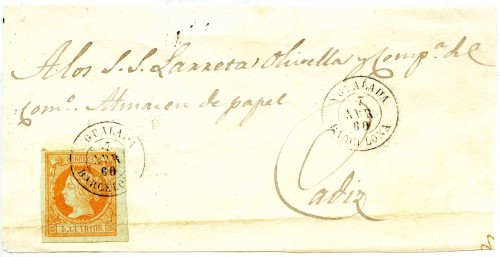 A los S.S. Larreta Olivella y Comp.ª del
Com.º Almacen de papel
Cadiz
YGUALADA
7
ABR
60
BARCELONA
YGUALADA
7
ABR
60
BARCELONA
4 CUARTOS